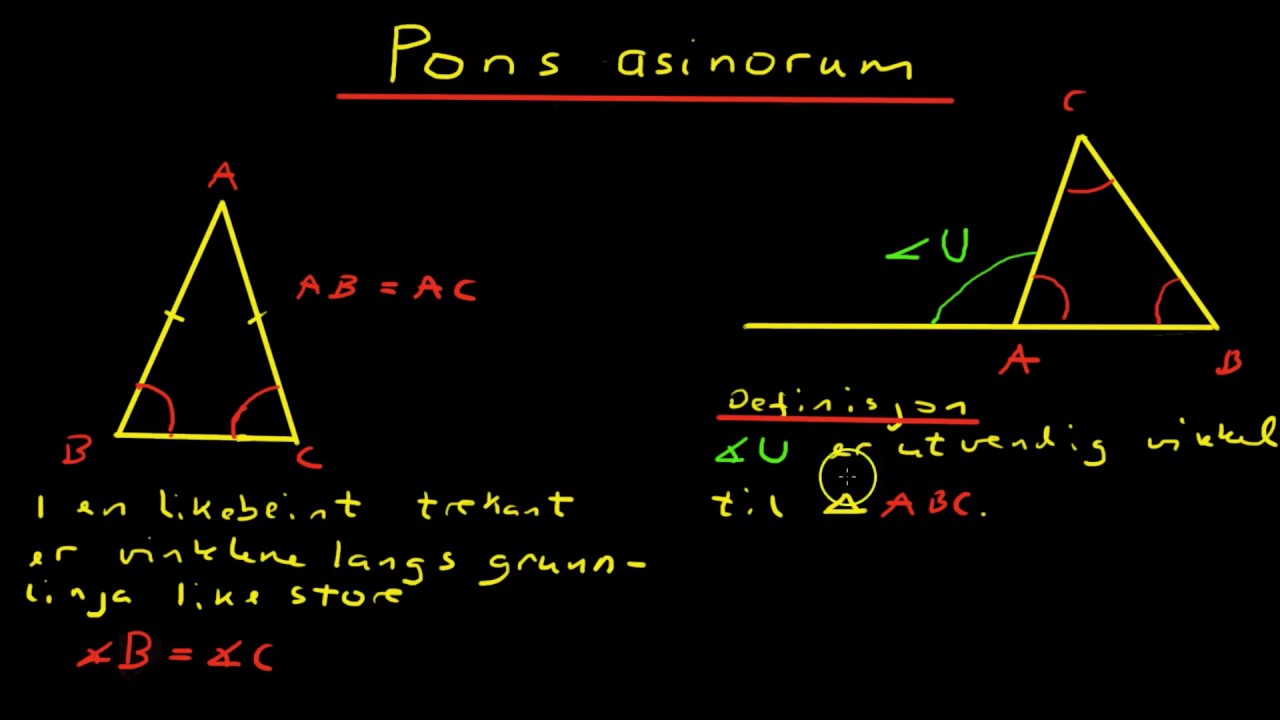 Pons asinorum
A
AB = AC
B
C
I en likebeint trekant
er vinklene langs grunn-
linja like store
∡B = ∡C
C
∠U
A
B
Definisjon
∡U er utvendig vinkel
til △ ABC.